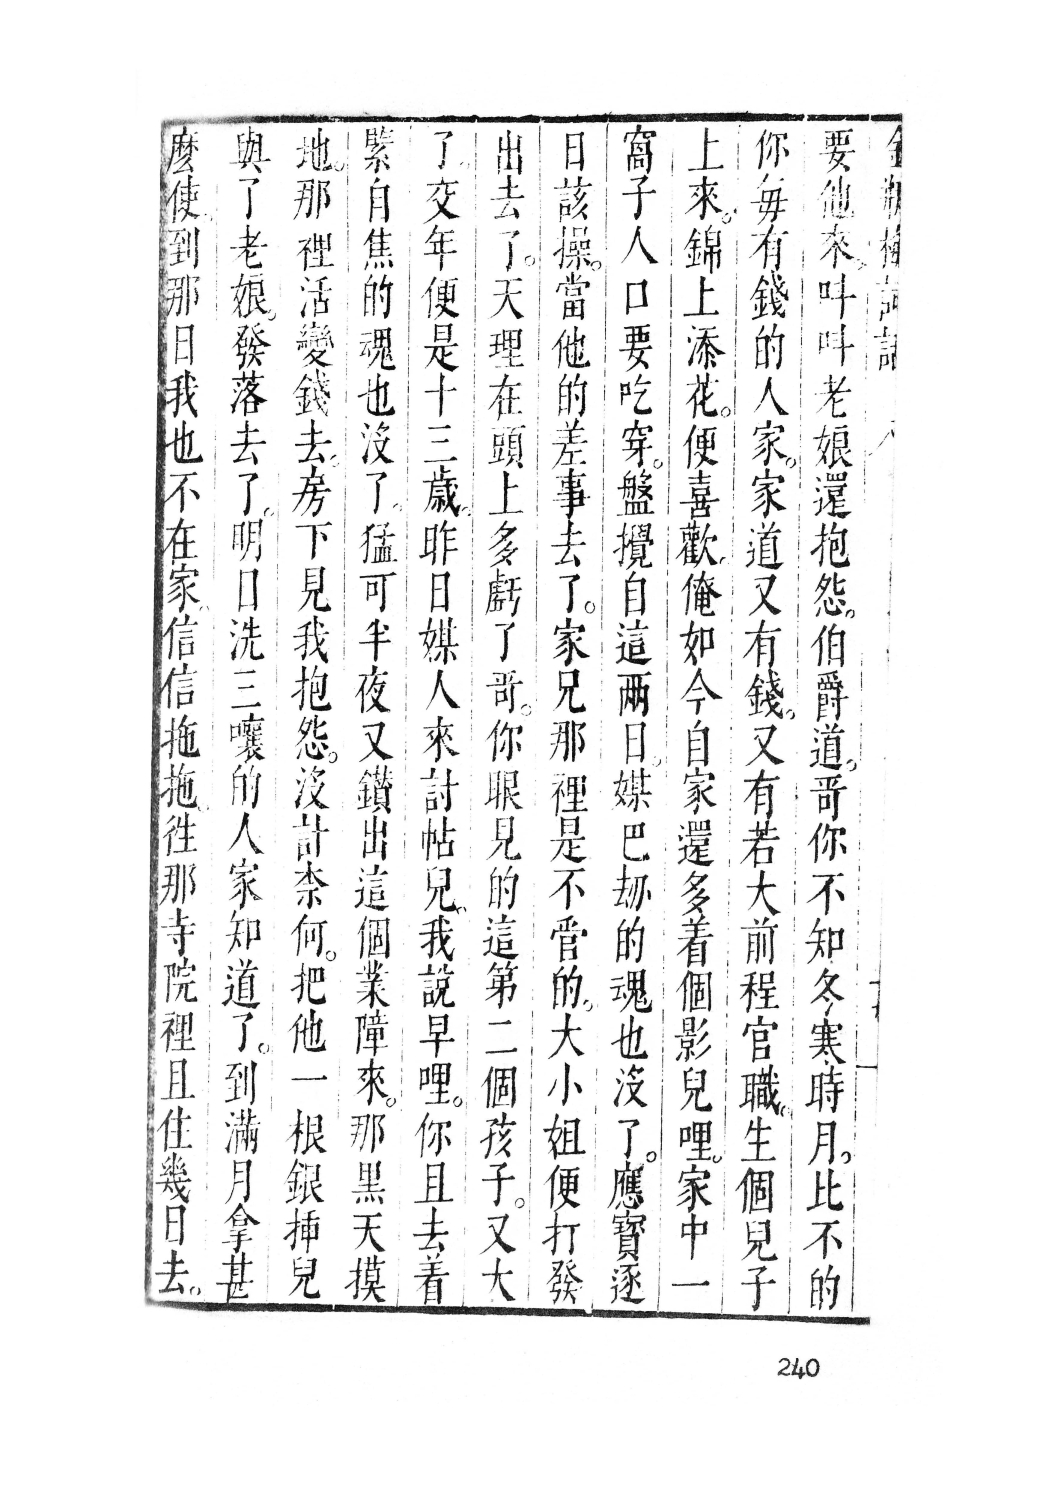 金瓶梅詞話
要他來。叫叫老娘還抱怨。伯爵道。哥你不知冬寒時月。比不的
你每有錢的人家。家道又有錢。又有若大前程官職。生個兒子
上來。錦上添花。便喜歡。俺如今自家還多着個影兒哩。家中一
窩子人口要吃穿。盤攪自這兩日。媒巴刼的魂也沒了。應寶逐
日該操。當他的差事去了。家兄那裡是不管的。大小姐便打發
出去了。天理在頭上多虧了哥。你眼見的這第二個孩子。又大
了。交年便是十三歲。昨日媒人來討帖兒。我說早哩。你且去着
緊自焦的魂也沒了。猛可半夜又鑽出這個業障來。那黑天摸
地。那裡活變錢去。房下見我抱怨。沒計柰何。把他一根銀揷兒
與了老娘。發落去了。明日洗三嚷的人家知道了。到滿月拿甚
麼使。到那日我也不在家。信信拖拖。徃那寺院裡且住幾日去。
240